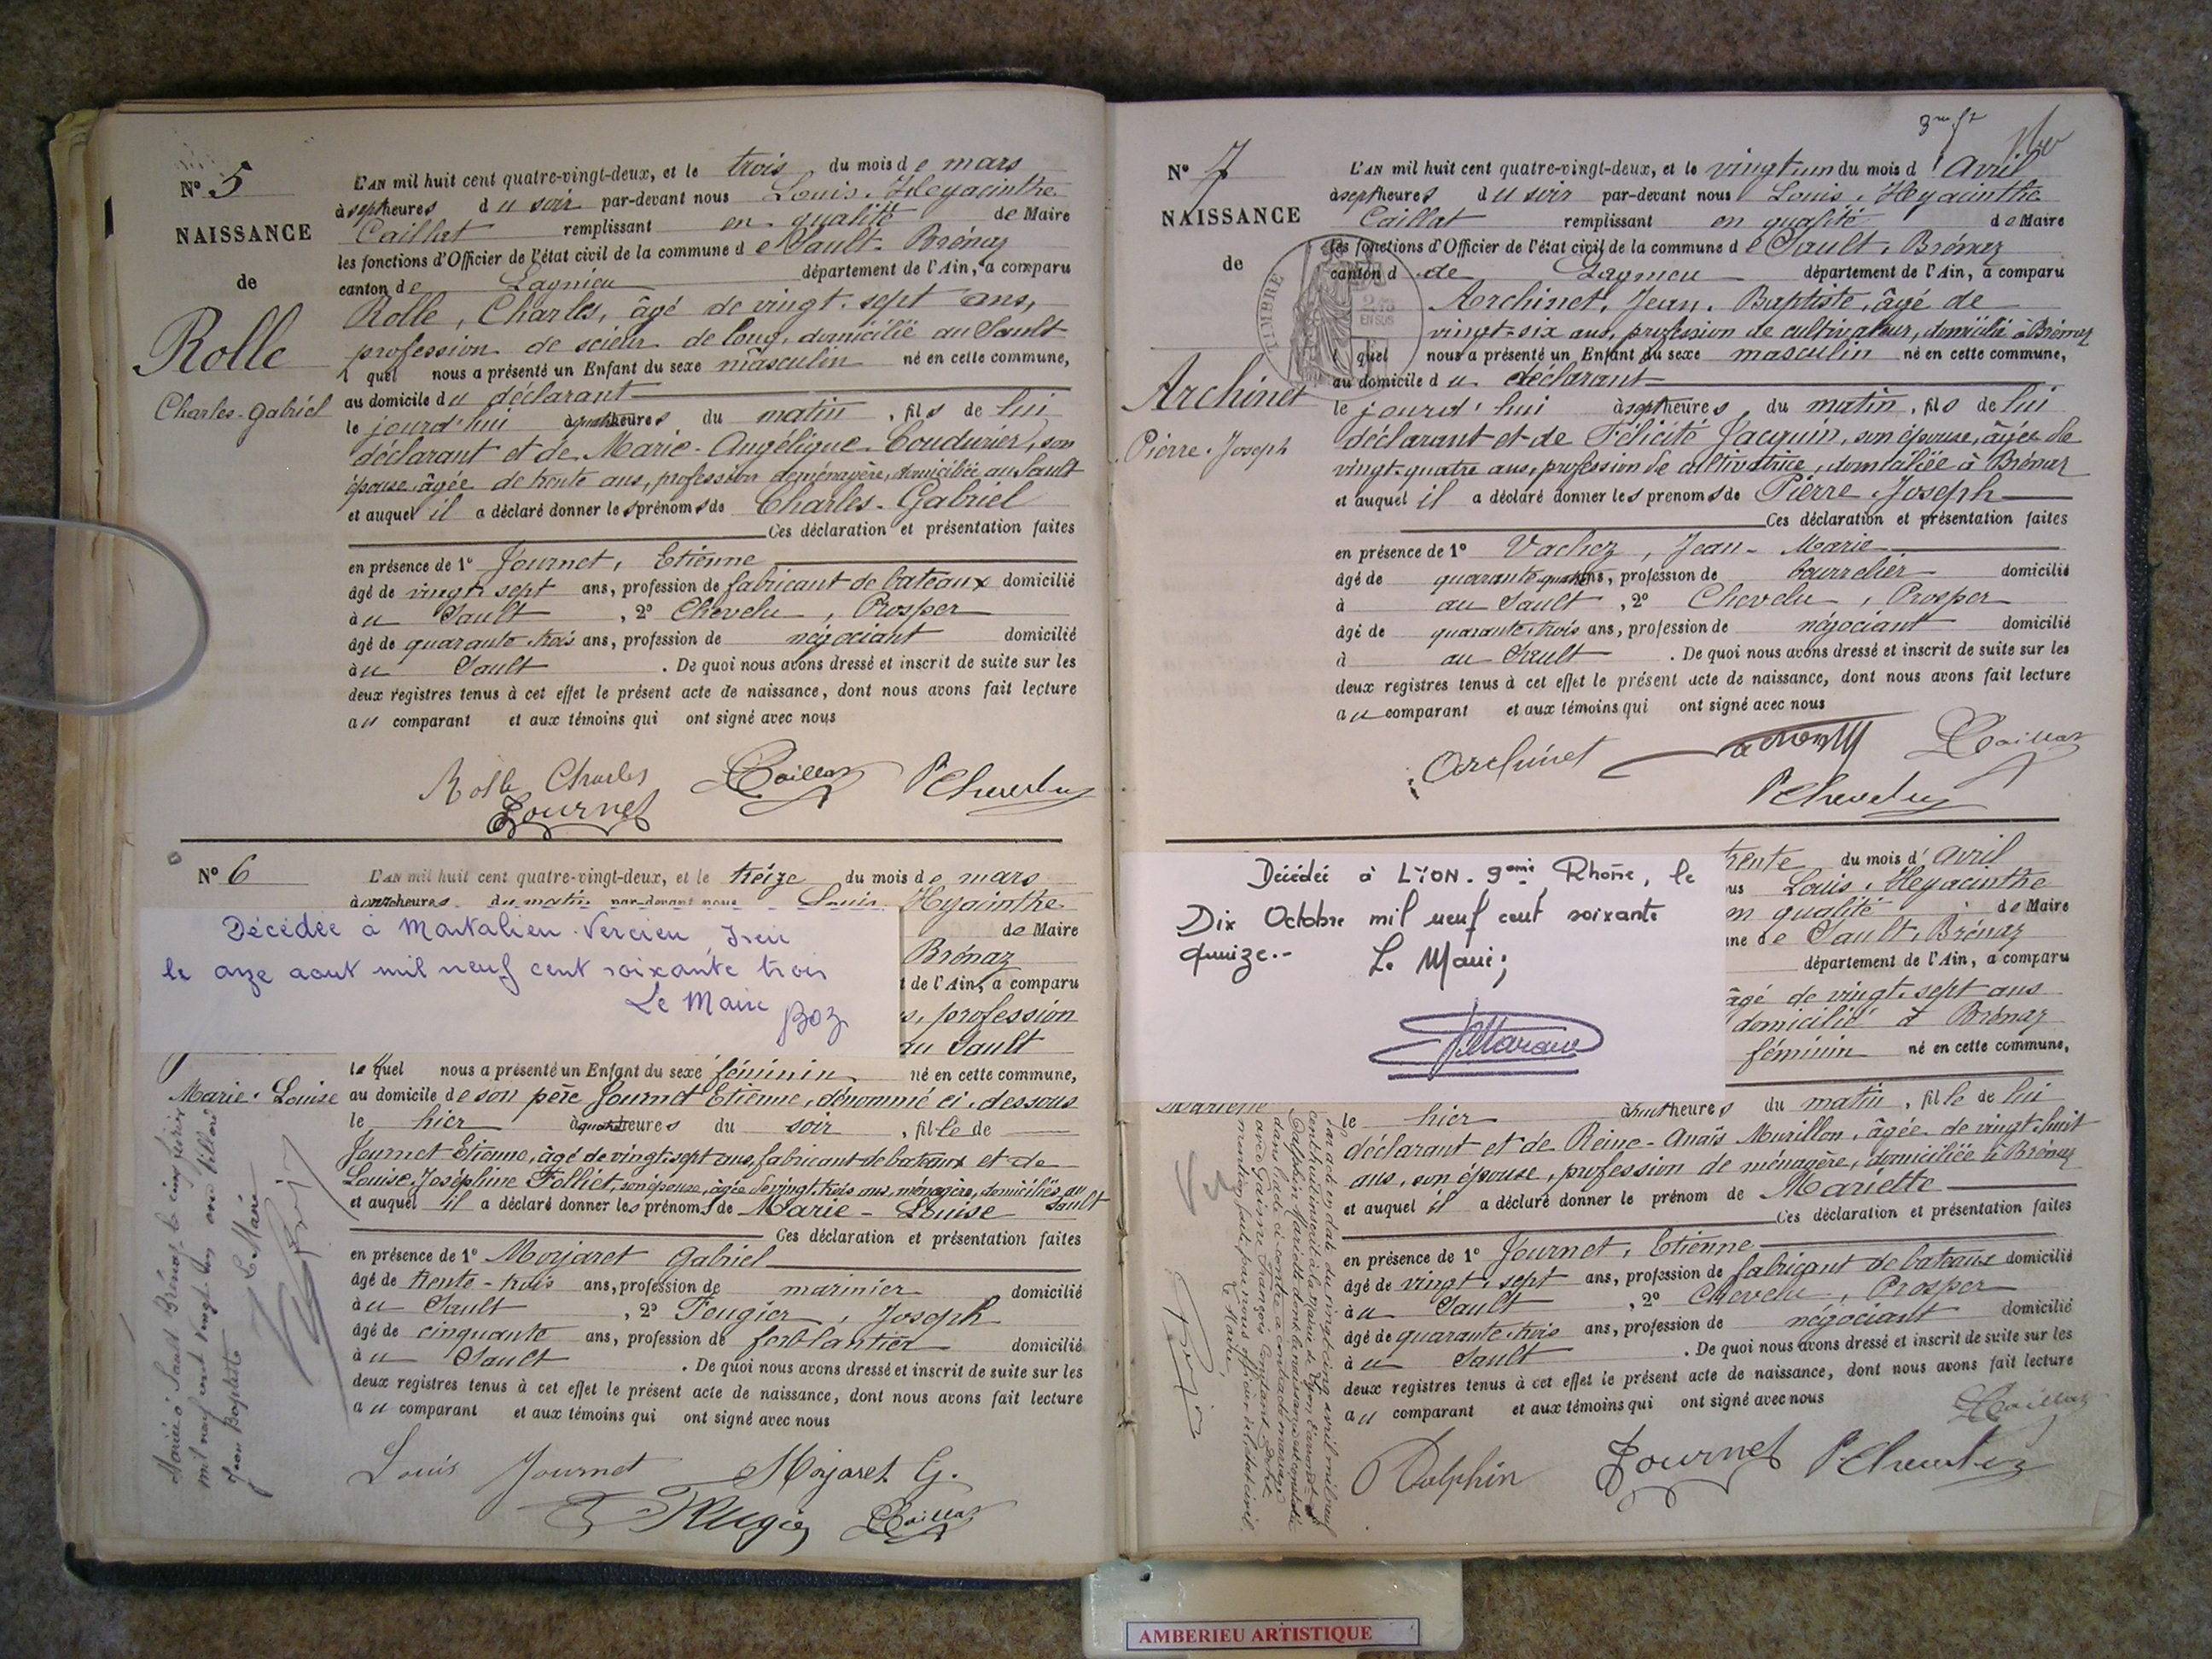 N° 5
NAISSANCE
de
Rolle
Charles-Gabriel
L'AN mil huit cent quatre-vingt-deux, et le trois du mois de mars
à sept heures du soir par-devant nous Louis, Hyacinthe
Caillat remplissant en qualité de Maire
les fonctions d'Officier de l'état civil de la commune de Sault-Brénaz
canton de Lagnieu département de l'Ain, a comparu
Rolle, Charles, âgé de vingt-sept ans,
profession de scieur de long, domicilié au Sault
lequel nous a présenté un Enfant du sexe masculin né en cette commune,
au domicile du déclarant
le jourd'hui à quatre heures du matin, fils de lui
déclarant et de Marie-Angélique Coudurier, son
épouse, âgée de trente ans, profession de ménagère, domiciliée au Sault
et auquel il a déclaré donner les prénoms de Charles-Gabriel
Ces déclaration et présentation faites
en présence de 1° Journet, Etienne
âgé de vingt-sept ans, profession de fabricant de bateaux domicilié
au Sault, 2° Chevelu, Prosper
âgé de quarante-trois ans, profession de négociant domicilié
au Sault. De quoi nous avons dressé et inscrit de suite sur les
deux registres tenus à cet effet le présent acte de naissance, dont nous avons fait lecture
au comparant et aux témoins qui ont signé avec nous
Rolle Charles Caillat P. Chevelu
Journet
N° 6
L'AN mil huit cent quatre-vingt-deux, et le treize du mois de mars
à onze heures du matin par-devant nous Louis Hyacinthe
de Maire
Brénaz
t de l'Ain, a comparu
s, profession
au Sault
Décédée à Montalieu-Vercieu, Isère
le onze aout mil neuf cent soixante trois
Le Maire
Marie-Louise
lequel nous a présenté un Enfant du sexe féminin né en cette commune,
au domicile de son père Journet Etienne, dénommé ci-dessous
le hier à quatre heures du soir, fille de
Journet Etienne, âgé de vingt-sept ans, fabricant de bateaux et de
Louise Joséphine Folliet, son épouse, âgée de vingt-trois ans, ménagère, domiciliés au Sault
et auquel il a déclaré donner les prénoms de Marie-Louise
Ces déclaration et présentation faites
en présence de 1° Morjaret Gabriel
âgé de trente-trois ans, profession de marinier domicilié
au Sault, 2° Feugier, Joseph
âgé de cinquante ans, profession de ferblantier domicilié
au Sault. De quoi nous avons dressé et inscrit de suite sur les
deux registres tenus à cet effet le présent acte de naissance, dont nous avons fait lecture
au comparant et aux témoins qui ont signé avec nous
Louis Journet Morjaret G.
Caillat
Mariée à Sault Brénaz le cinq
mil neuf cent vingt
Jean Baptiste
Le Maire
N° 7
NAISSANCE
de
Archinet
Pierre-Joseph
L'AN mil huit cent quatre-vingt-deux, et le vingt un du mois d'Avril
à sept heures du soir par-devant nous Louis, Hyacinthe
Caillat remplissant en qualité de Maire
les fonctions d'Officier de l'état civil de la commune de Sault-Brénaz
canton d de Lagnieu département de l'Ain, a comparu
Archinet, Jean-Baptiste, âgé de
vingt-six ans, profession de cultivateur, domicilié à Brénaz
lequel nous a présenté un Enfant du sexe masculin né en cette commune,
au domicile du déclarant
le jourd'hui à sept heures du matin, fils de lui
déclarant et de Félicité Jacquin, son épouse, âgée de
vingt-quatre ans, profession de cultivatrice, domiciliée à Brénaz
et auquel il a déclaré donner les prénoms de Pierre-Joseph
Ces déclaration et présentation faites
en présence de 1° Vachez, Jean-Marie
âgé de quarante quatre ans, profession de bourrelier domicilié
à au Sault, 2° Chevelu, Prosper
âgé de quarante-trois ans, profession de négociant domicilié
à au Sault. De quoi nous avons dressé et inscrit de suite sur les
deux registres tenus à cet effet le présent acte de naissance, dont nous avons fait lecture
au comparant et aux témoins qui ont signé avec nous
Archinet Caillat
P. Chevelu
TIMBRE
Décédée à LYON. 9ème Rhône, le
Dix Octobre mil neuf cent soixante
quinze.-
Le Maire;
trente du mois d'avril
us Louis, Hyacinthe
en qualité de Maire
une de Sault-Brénaz
département de l'Ain, a comparu
âgé de vingt-sept ans
domicilié à Brénaz
féminin né en cette commune,
Mariette
le hier à huit heures du matin, fille de lui
déclarant et de Reine-Anaïs Murillon, âgée de vingt-huit
ans, son épouse, profession de ménagère, domiciliée à Brénaz
et auquel il a déclaré donner le prénom de Mariette
Ces déclaration et présentation faites
en présence de 1° Journet, Etienne
âgé de vingt-sept ans, profession de fabricant de bateaux domicilié
au Sault, 2° Chevelu, Prosper
âgé de quarante-trois ans, profession de négociant domicilié
au Sault. De quoi nous avons dressé et inscrit de suite sur les
deux registres tenus à cet effet le présent acte de naissance, dont nous avons fait lecture
au comparant et aux témoins qui ont signé avec nous
Caillat
Dalphin Journet P. Chevelu
AMBERIEU ARTISTIQUE